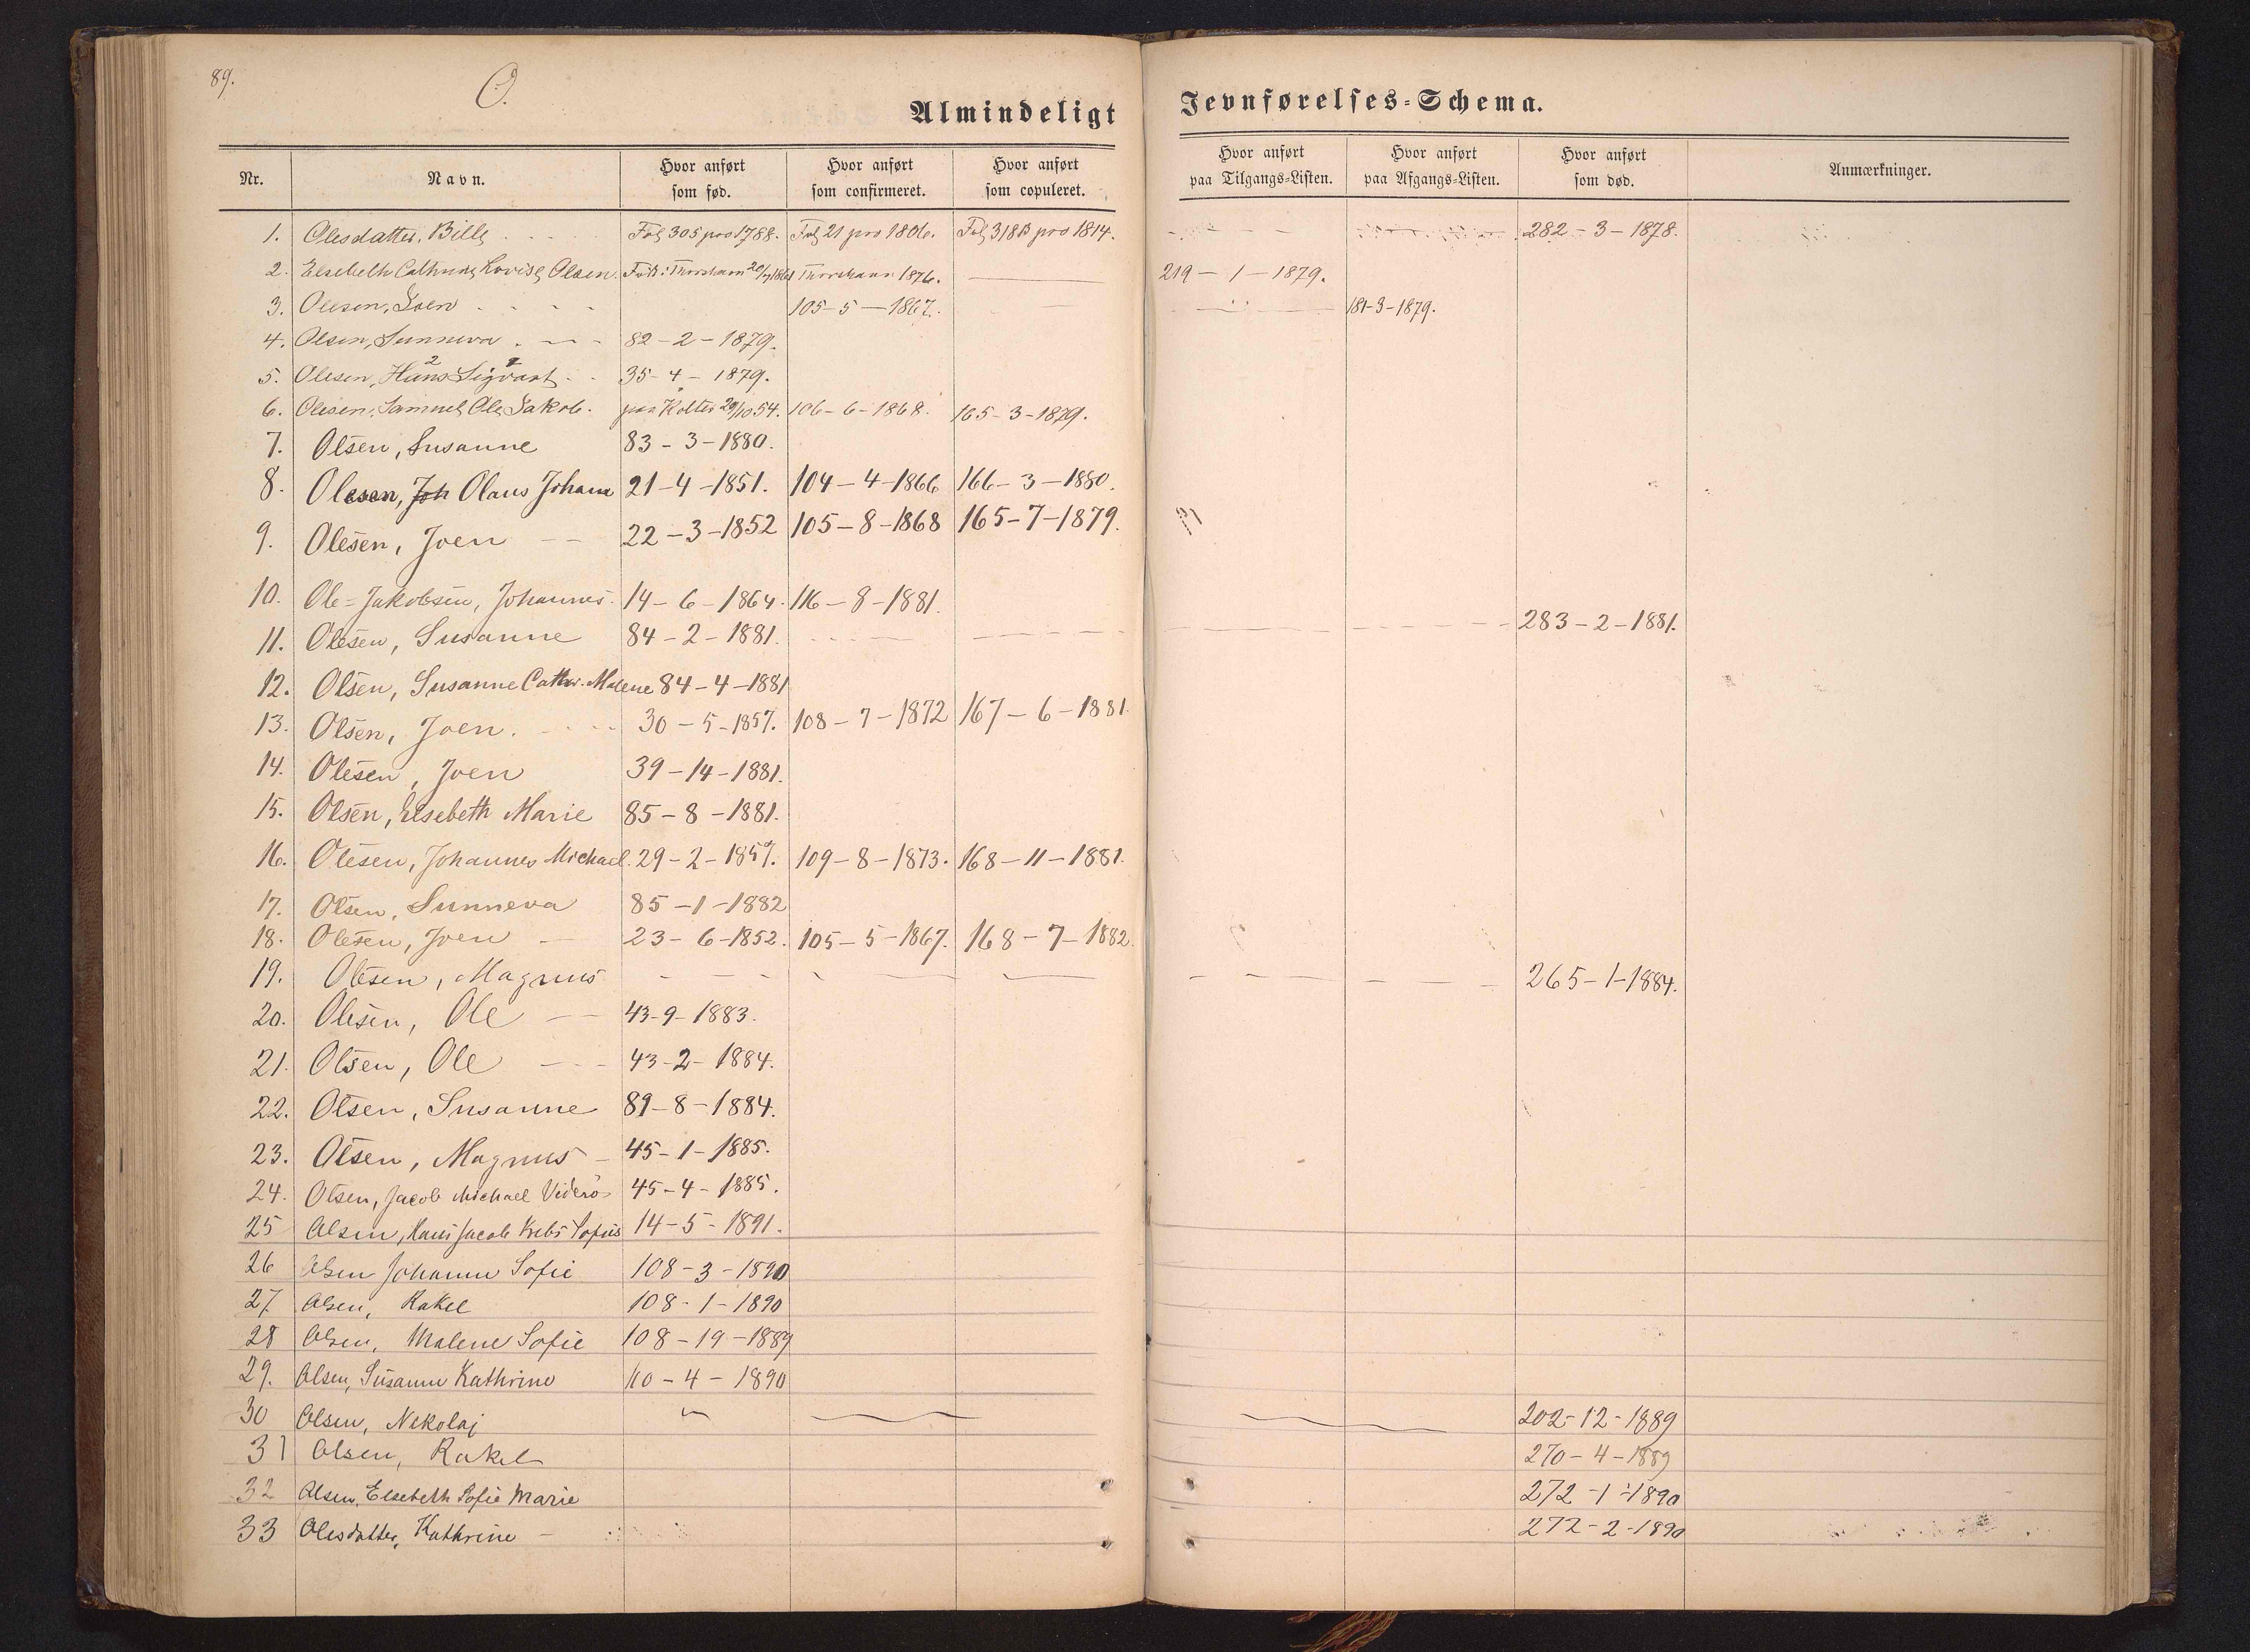 89.
O.
Almindeligt Jevnførelses-Schema.
Nr. Navn. Hvor anført som fød. Hvor anført som confirmeret. Hvor anført som copuleret. Hvor anført paa Tilgangs-Listen. Hvor anført paa Afgangs-Listen. Hvor anført som død. Anmærkninger.
1. Olesdatter, Bille Fol 305 pro 1788. Fol 21 pro 1806. Fol 318B pro 1814. 282-3-1878.
2. Elsebeth Cathrine Lovise Olsen. Født i Thorshavn 20/7 1861 Thorshavn 1876. 219-1-1879.
3. Olesen, Joen 105-5-1867. 181-3-1879.
4. Olsen, Sunneva 82-2-1879.
5. Olesen, Hans Sigvart 35-4-1879.
6. Olesen, Samuel Ole Jakob. paa Kolter 29/10 54. 106-6-1868. 165-3-1879.
7. Olsen, Susanne 83-3-1880.
8. Olesen, Joh Olaus Johan 21-4-1851. 104-4-1866 166-3-1880.
9. Olesen, Joen 22-3-1852 105-8-1868 165-7-1879.
10. Ole=Jakobsen, Johannes. 14-6-1864. 116-8-1881.
11. Olesen, Susanne 84-2-1881. 283-2-1881.
12. Olsen, Susanne Cathr. Malene 84-4-1881
13. Olsen, Joen. 30-5-1857. 108-7-1872 167-6-1881.
14. Olesen, Joen 39-14-1881.
15. Olsen, Elsebeth Marie 85-8-1881.
16. Olesen, Johannes Michael. 29-2-1857. 109-8-1873. 168-11-1881.
17. Olsen, Sunneva 85-1-1882
18. Olesen, Joen 23-6-1852. 105-5-1867. 168-7-1882.
19. Olesen, Magnus 265-1-1884.
20. Olesen, Ole 43-9-1883.
21. Olsen, Ole 43-2-1884.
22. Olsen, Susanne 89-8-1884.
23. Olsen, Magnus 45-1-1885.
24. Olsen, Jacob Michael Viderö 45-4-1885.
25 Olsen, Hans Jacob Krebs Sofus 14-5-1891.
26 Olsen Johanne Sofie 108-3-1890
27. Olsen, Rakel 108-1-1890
28 Olsen, Malene Sofie 108-19-1889
29. Olsen, Susanne Kathrine 110-4-1890
30 Olsen, Nikolaj 202-12-1889
31 Olsen, Rakel 270-4-1889
32 Olsen, Elsebeth Sofie Marie 272-1-1890
33 Olesdatter, Kathrine 272-2-1890